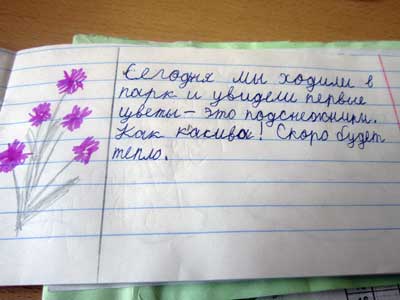 Сегодня мы ходили в
парк и увидели первые
цветы – это подснежники.
Как касива! Скоро будет
тепло.